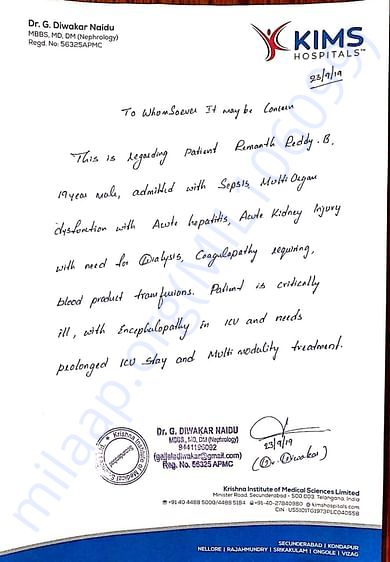 Dr. G. Diwakar Naidu
MBBS, MD, DM (Nephrology)
Regd. No: 56325APMC
KIMS
HOSPITALS™
23/9/19
To Whomsoever It may be Concern
This is regarding Patient Remanth Reddy.B,
19 year male, admitted with Sepsis Multi Organ
dysfunction with Acute hepatitis, Acute Kidney Injury
with need for Dialysis, Coagulopathy requiring,
blood product transfusions. Patient is critically
ill, with Encephalopathy in ICU and needs
prolonged ICU stay and Multi modality treatment.
milaap.org
Krishna Institute of Medical
Secunderabad
Dr. G. DIWAKAR NAIDU
MBBS, MD, DM (Nephrology)
(gajjeladiwakar@gmail.com)
Reg. No. 56325 APMC
23/9/19
(Dr. Diwakar)
Krishna Institute of Medical Sciences Limited
Minister Road, Secunderabad - 500 003. Telangana, India
+91 40 4488 5000/4488 5184 +91-40-27840980 kimshospitals.com
CIN : U55101TG1973PLC040558
SECUNDERABAD | KONDAPUR
NELLORE | RAJAHMUNDRY | SRIKAKULAM | ONGOLE | VIZAG